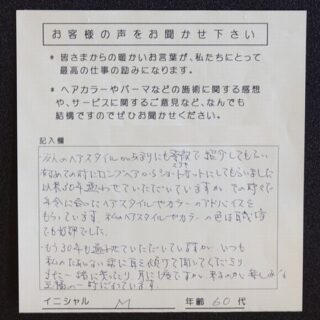 お客様の声をお聞かせ下さい
* 皆さまからの暖かいお言葉が、私たちにとって
最高の仕事の励みになります。
* ヘアカラーやパーマなどの施術に関する感想
や、サービスに関するご意見など、なんでも
結構ですのでぜひお聞かせください。
記入欄
友人のヘアスタイルがあまりにも素敵で紹介してもらい
初めての時にロングヘアからショートカットにしてもらいました
以来30年通わせていただいていますが、その時々で
年令に合ったヘアスタイルやカラーのアドバイスを
もらっています。私のヘアスタイルやカラーの色は職場
でも好評でした。
もう30年も通わせていただいていますが、いつも
私のたわいない話に耳を傾けて聞いてくださり
また一緒に笑ったり
至福の一時になっています。
イニシャル M 年齢 60代